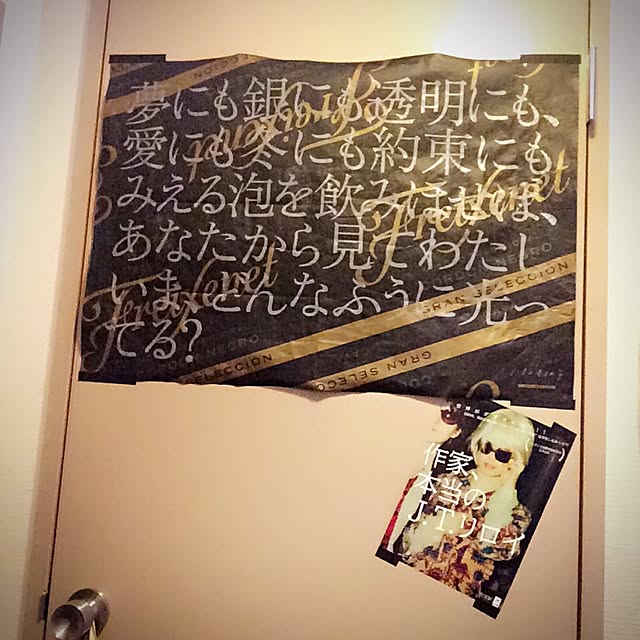 夢にも銀にも透明にも、
愛にも冬にも約束にも
みえる泡を飲みほせば、
あなたから見てわたし
いま、どんなふうに光っ
てる?
Freixenet
Freixenet
GRAN SELECCION
GRAN SELECC
SELECCION
作家、
本当の
J.T.リロイ